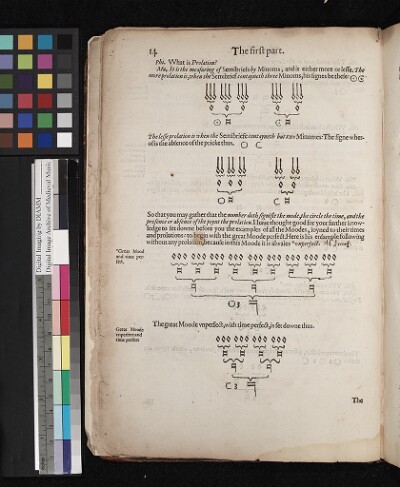 14
The first part.
Phi. What is Prolation?
Ma. It is the measuring of Semibriefs by Minoms, and is either more or lesse. The
more prolation is, when the Semibriefe contayneth three Minoms, his signes be these:
The lesse prolation is when the Semibriefe contayneth but two Minomes: The signe wher-
of is the absence of the pricke thus.
So that you may gather that the number doth signifie the mode, the circle the time, and the
presence or absence of the poynt the prolation. I haue thought good for your further know-
ledge to set downe before you the examples of all the Moodes, ioyned to their times
and prolations: to begin with the great Moode perfect. Here is his example following
without any prolation, because in this Moode it is alwaies
*Great Mood
and time per-
fect.
O 3
The great Moode vnperfect, with time perfect, is set downe thus.
Great Moode
vnperfect and
time perfect
C 3
The
Digital Imaging by DIAMM
Digital Image Archive of Medieval Music